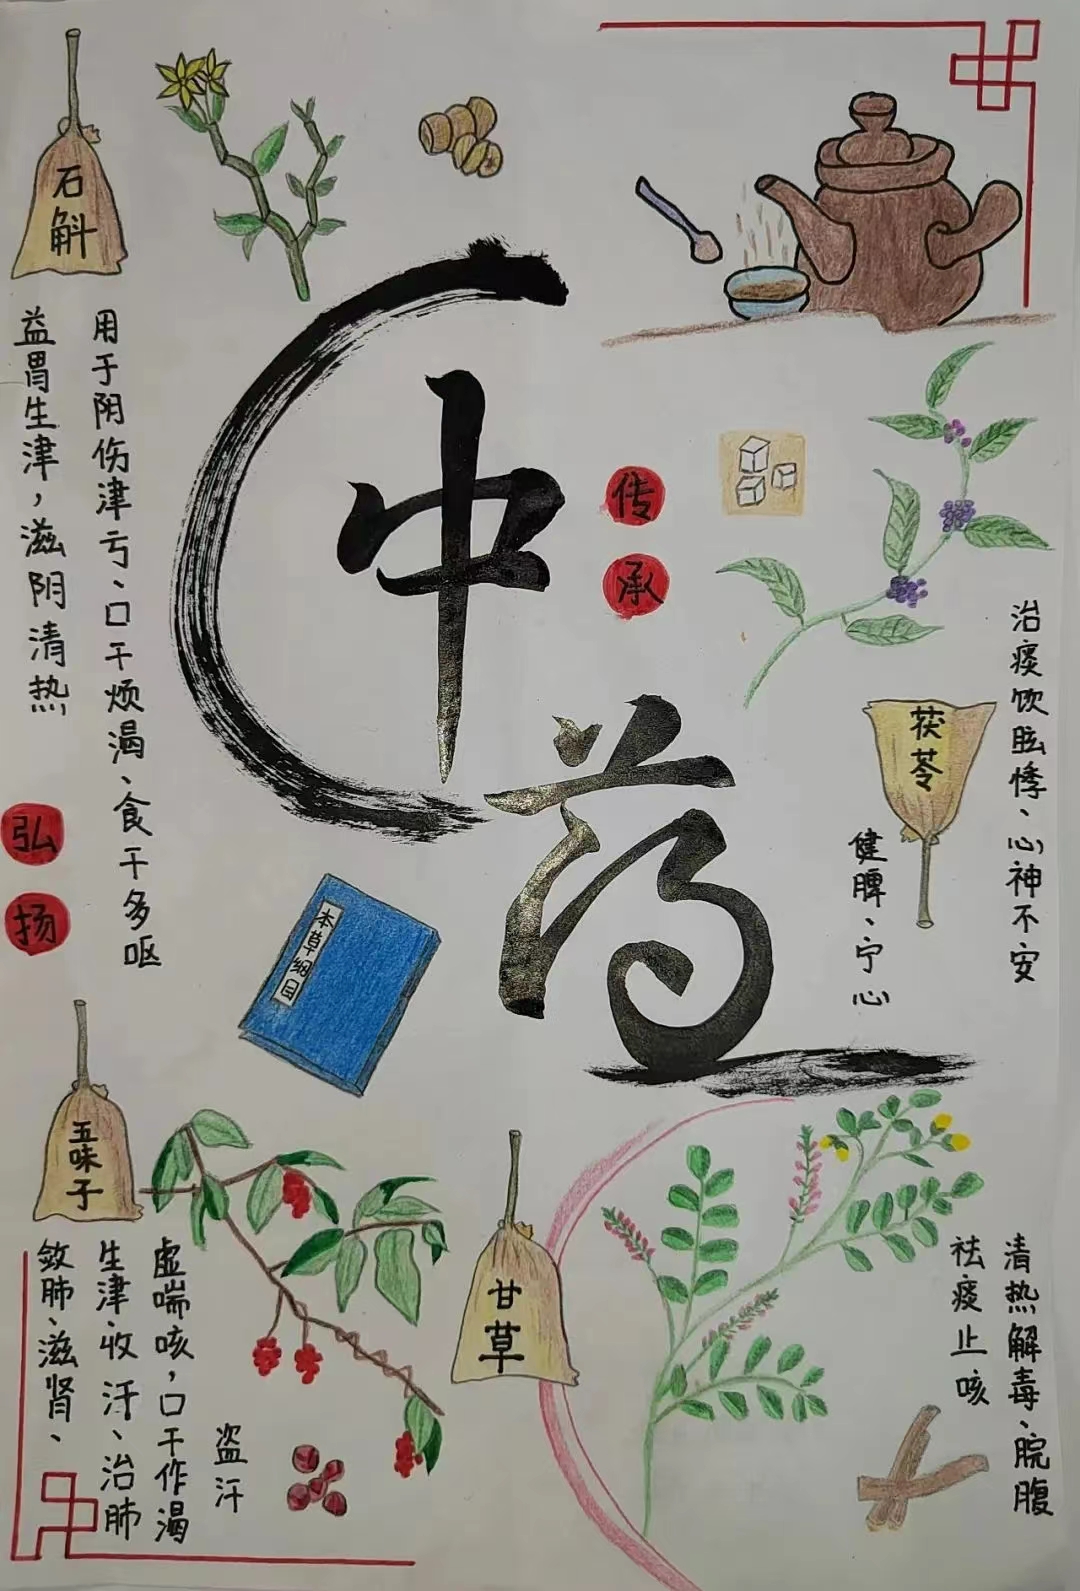 石斛
益胃生津，滋阴清热
用于阴伤津亏、口干烦渴、食干多呕
弘扬
中药
传承
本草纲目
茯苓
治痰饮眩悸、心神不安
健脾、宁心
五味子
敛肺、滋肾、
生津、收汗、治肺
虚喘咳，口干作渴
盗汗
甘草
清热解毒、脘腹
祛痰止咳